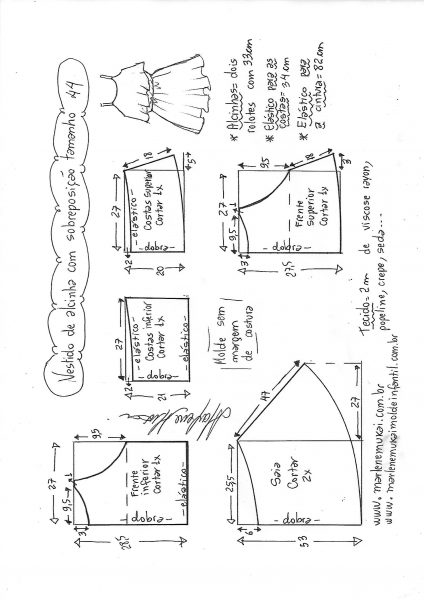 Vestido de alcinha com sobreposição tamanho 44
* Alcinhas= dois
rolotes com 33cm
* Elástico para as
costas= 34 cm
* Elástico para
a cintura= 82cm
27
18
1,5
2
-elástico-
Costas superior
Cortar 1x
-dobra-
20
9,5
18
3
1
9,5
3
Frente
Superior
Cortar 1x
-dobra-
27,5
27
2
-elástico-
Costas inferior
Cortar 1x
-dobra-
-elástico-
21
Molde sem
margem
de costura
Tecido= 2m de viscose rayon,
popeline, crepe, seda...
27
9,5
1
9,5
3
Frente
inferior
Cortar 1x
-dobra-
-elástico-
28,5
47
25,5
6
Saia
Cortar
2x
-dobra-
27
53
www.marlenemukai.com.br
www.marlenemukaimoldeinfantil.com.br